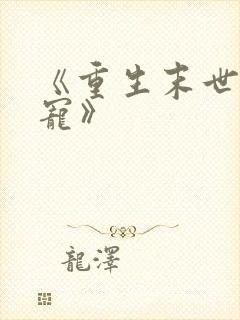 《重生末世
寵》
龍澤